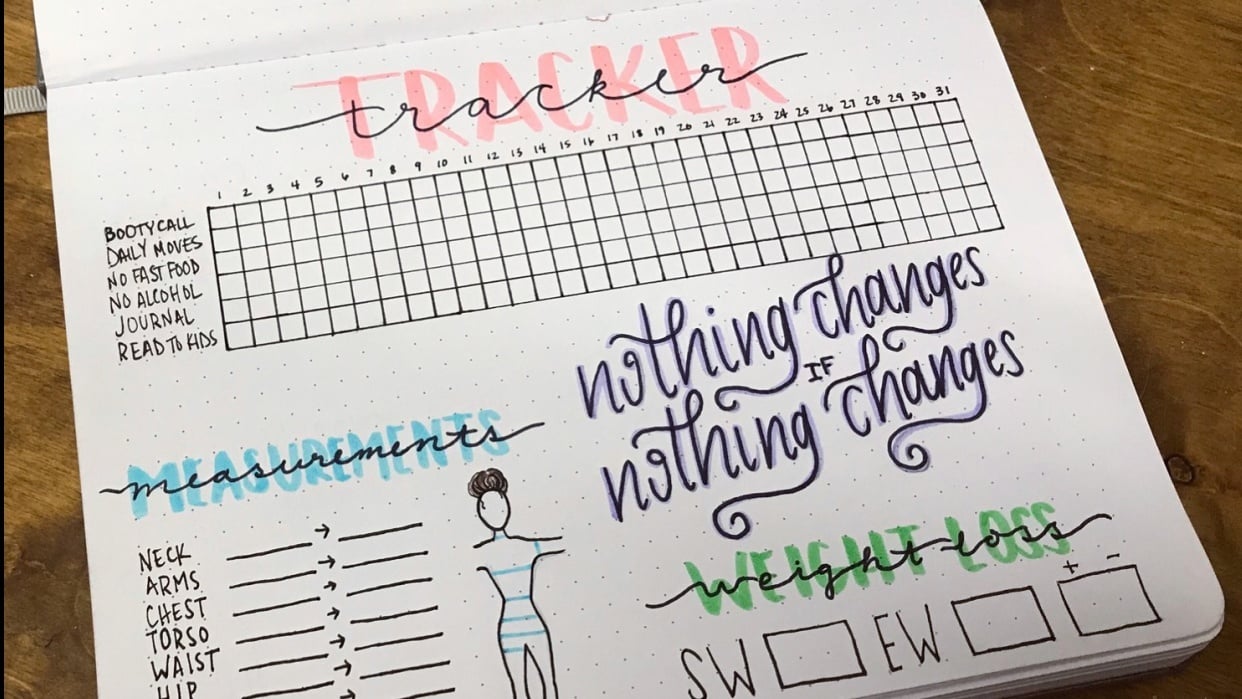 TRACKER
tracker
1 2 3 4 5 6 7 8 9 10 11 12 13 14 15 16 17 18 19 20 21 22 23 24 25 26 27 28 29 30 31
BOOTY CALL
DAILY MOVES
NO FAST FOOD
NO ALCOHOL
JOURNAL
READ TO KIDS
nothing changes
IF
nothing changes
MEASUREMENTS
measurements
NECK →
ARMS →
CHEST →
TORSO →
WAIST →
HIP →
WEIGHT LOSS
weight loss
+ -
SW EW